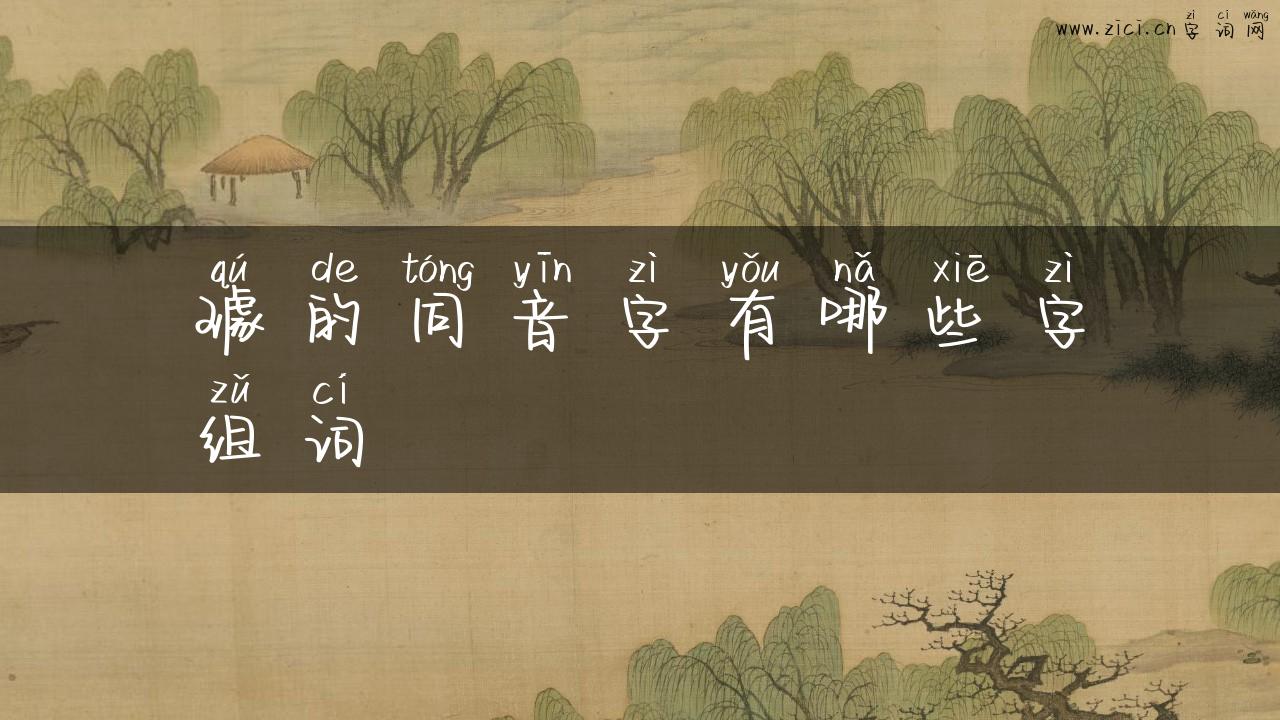 zì cí wǎng
www.zici.cn 字词网
qú de tóng yīn zì yǒu nǎ xiē zì
璩的同音字有哪些字
zǔ cí
组词